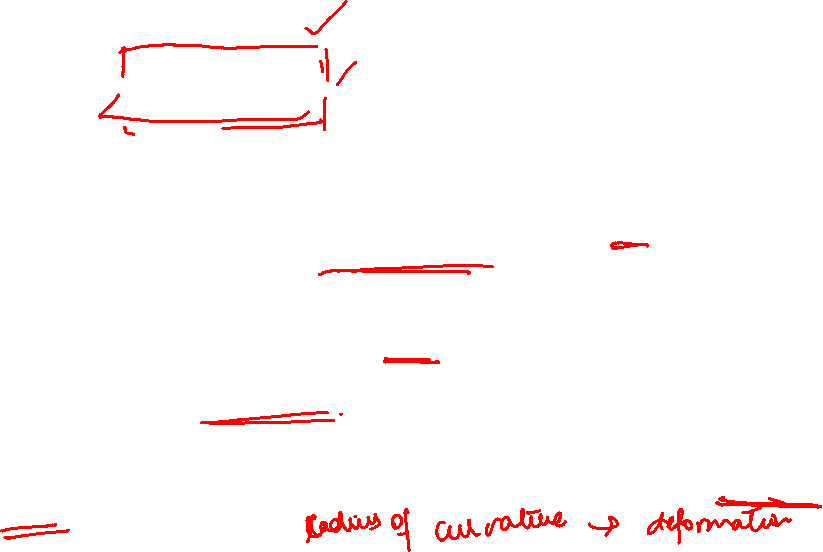 Radius of curvature → deformation